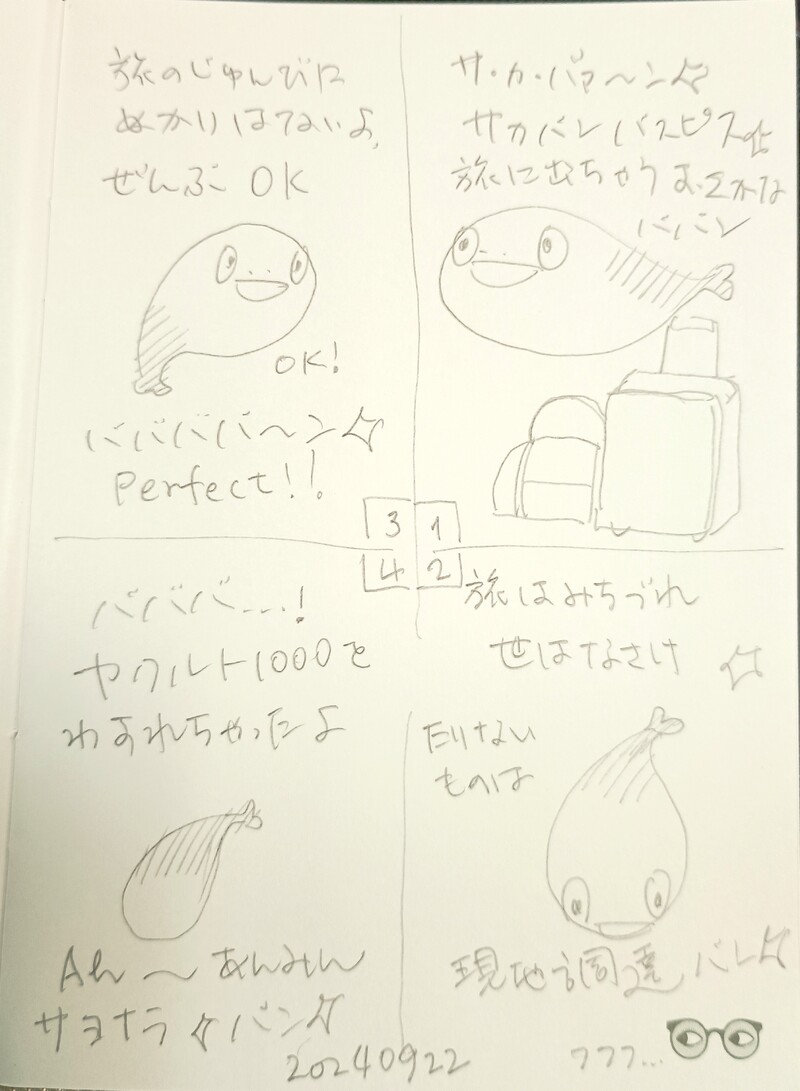 1
サ・カ・バァ〜ン☆
サカバンバスピス☆
旅に出ちゃうおさかな
バババン
2
旅はみちづれ
世はなさけ ☆
たりない
ものは
現地調達バン☆
フフフ...
3
旅のじゅんびに
ぬかりはないよ、
ぜんぶ OK
OK!
バババババ〜ン☆
Perfect!!
4
バババ...!
ヤクルト1000を
わすれちゃったよ
Ah〜あんみん
サヨナラ☆バン☆
20240922